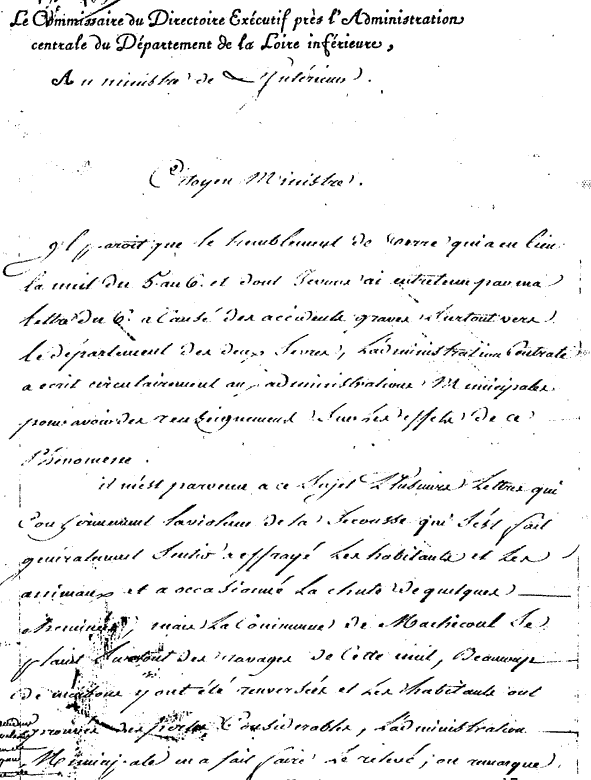 Le Commissaire du Directoire Exécutif près l'Administration
centrale du Département de la Loire inférieure,
Au ministre de L'Intérieur.
Citoyen Ministre.
Il paroit que le tremblement de terre qui a eu lieu
la nuit du 5 au 6. et dont je vous ai entretenu par ma
lettre du 6. a causé des accidents graves surtout vers
le département des deux Sevres, L'administration Centrale
a ecrit circulairement aux administrations Municipales
pour avoir des renseignements sur les effets de ce
Phénomene.
il m'est parvenu a ce Sujet Plusieurs Lettres qui
Confirment la violence de la Secousse qui s'est fait
généralement Sentir a effrayé Les habitants et Les
animaux et a occasionné La chute de quelques
cheminées, mais La Commune de Machecoul Se
plaint Surtout des ravages de Cette nuit, Beaucoup
de maisons y ont été renversées et Les habitants ont
éprouvé des pertes Considérables, L'administration
Municipale m'a fait faire Le relevé, on remarque